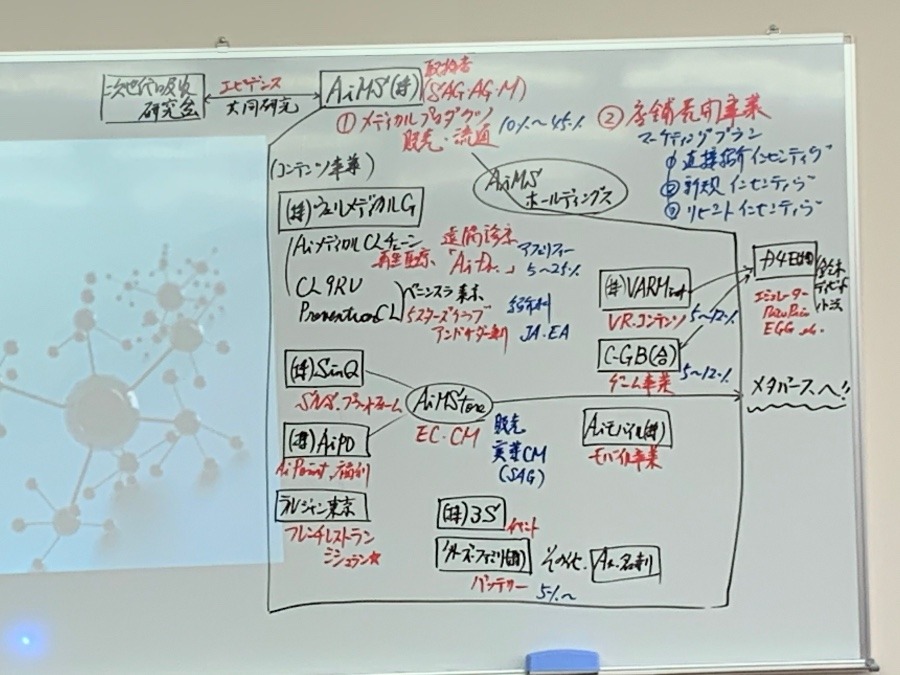 次世代吸収
研究会
エビデンス
共同研究
AiMS(株)
取扱者
(SAG・AG・M)
① メディカルプロダクツ
販売・流通
10%~45%
② 店舗売買事業
マーケティングプラン
① 直接紹介インセンティブ
② 新規インセンティブ
③ リピートインセンティブ
(コンテンツ事業)
AiMS
ホールディングス
(株)ウェルメディカルG
AiメディカルCLチェーン
遠隔診療
再生医療、「AiDr.」
アフェリィー
5~25%
CL9RU
PreventionCL
ペニンスラ東京
5スターズクラブ
JA.EA
(株)VARM
VRコンテンツ
5~12%
C-GB(合)
ゲーム事業
5~12%
エミュレーター
EGG etc.
メタバースへ!!
(株)SinQ
SNS.プラットホーム
AiMStore
EC.CM
(株)AiPO
AiPoint、福利
販売
実業CM
(SAG)
Aiモバイル(株)
モバイル事業
ラレジャン東京
フレンチレストラン
ミシュラン☆
(株)3S
イベント
バッテリー
5%~
その他.
Ai.名刺